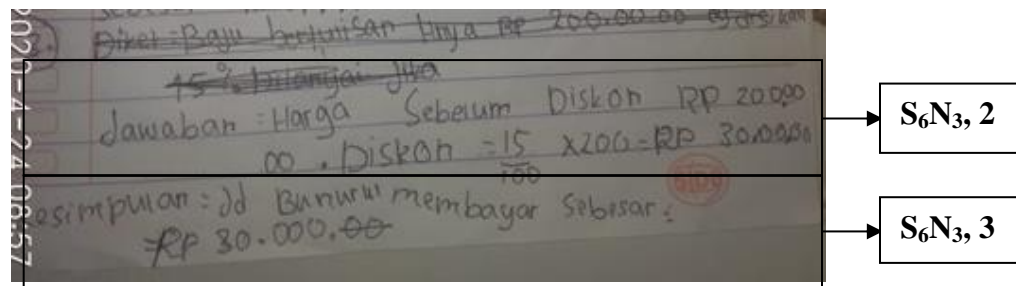 2.) Diket = Baju bertulisan Rp 200.00.00
15%. Jika
Jawaban = Harga Sebelum Diskon RP 20000
00 . Diskon = 15/100 X200=RP 30.00.00
esimpulan = Jd Bunurul membayar sebesar :
=RP 30.000.00
2020-4-24 06:57
S₆N₃, 2
S₆N₃, 3